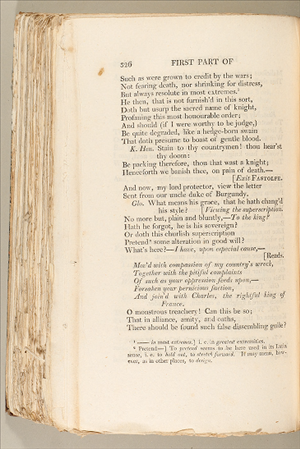 326 FIRST PART OF
Such as were grown to credit by the wars;
Not fearing death, nor shrinking for distress,
But always resolute in most extremes.¹
He then, that is not furnish'd in this sort,
Doth but usurp the sacred name of knight,
Profaning this most honourable order;
And should (if I were worthy to be judge,)
Be quite degraded, like a hedge-born swain
That doth presume to boast of gentle blood.
K. Hen. Stain to thy countrymen! thou hear'st
thy doom:
Be packing therefore, thou that wast a knight;
Henceforth we banish thee, on pain of death.—
[Exit FASTOLFE.
And now, my lord protector, view the letter
Sent from our uncle duke of Burgundy.
Glo. What means his grace, that he hath chang'd
his style? [Viewing the superscription.
No more but, plain and bluntly,—To the king?
Hath he forgot, he is his sovereign?
Or doth this churlish superscription
Pretend² some alteration in good will?
What's here?—I have, upon especial cause,—
[Reads.
Mov'd with compassion of my country's wreck,
Together with the pitiful complaints
Of such as your oppression feeds upon,—
Forsaken your pernicious faction,
And join'd with Charles, the rightful king of
France.
O monstrous treachery! Can this be so;
That in alliance, amity, and oaths,
There should be found such false dissembling guile?
¹ —— in most extremes.] i. e. in greatest extremities.
² Pretend—] To pretend seems to be here used in its Latin
sense, i. e. to hold out, to stretch forward. It may mean, how-
ever, as in other places, to design.